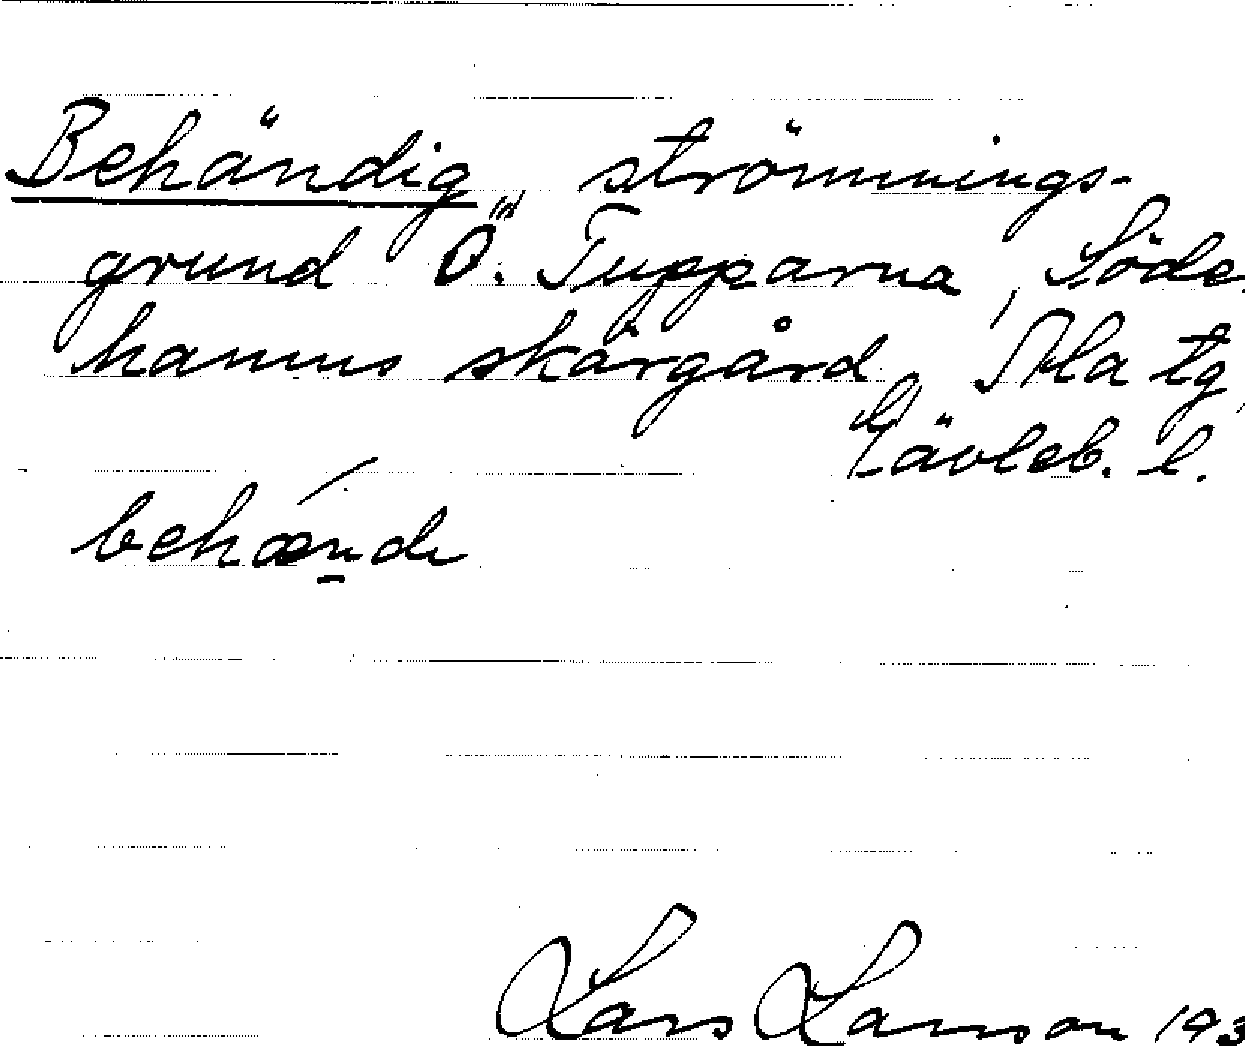 Behändig, strömmings-
grund Ö. Tupparna, Söder
hamns skärgård, Ala tg,
Gävleb. l.
behænde
Lars Larsson 193